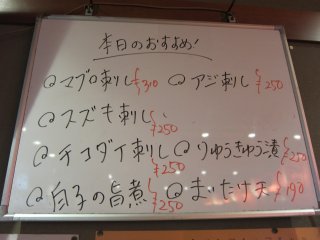 本日のおすすめ!
@マグロ刺し ¥310 @アジ刺し ¥250
@スズキ刺し ¥250
@チコダイ刺し ¥250 @りゅうきゅう漬 ¥250
@白子の旨煮 ¥250 @まいたけ天 ¥190